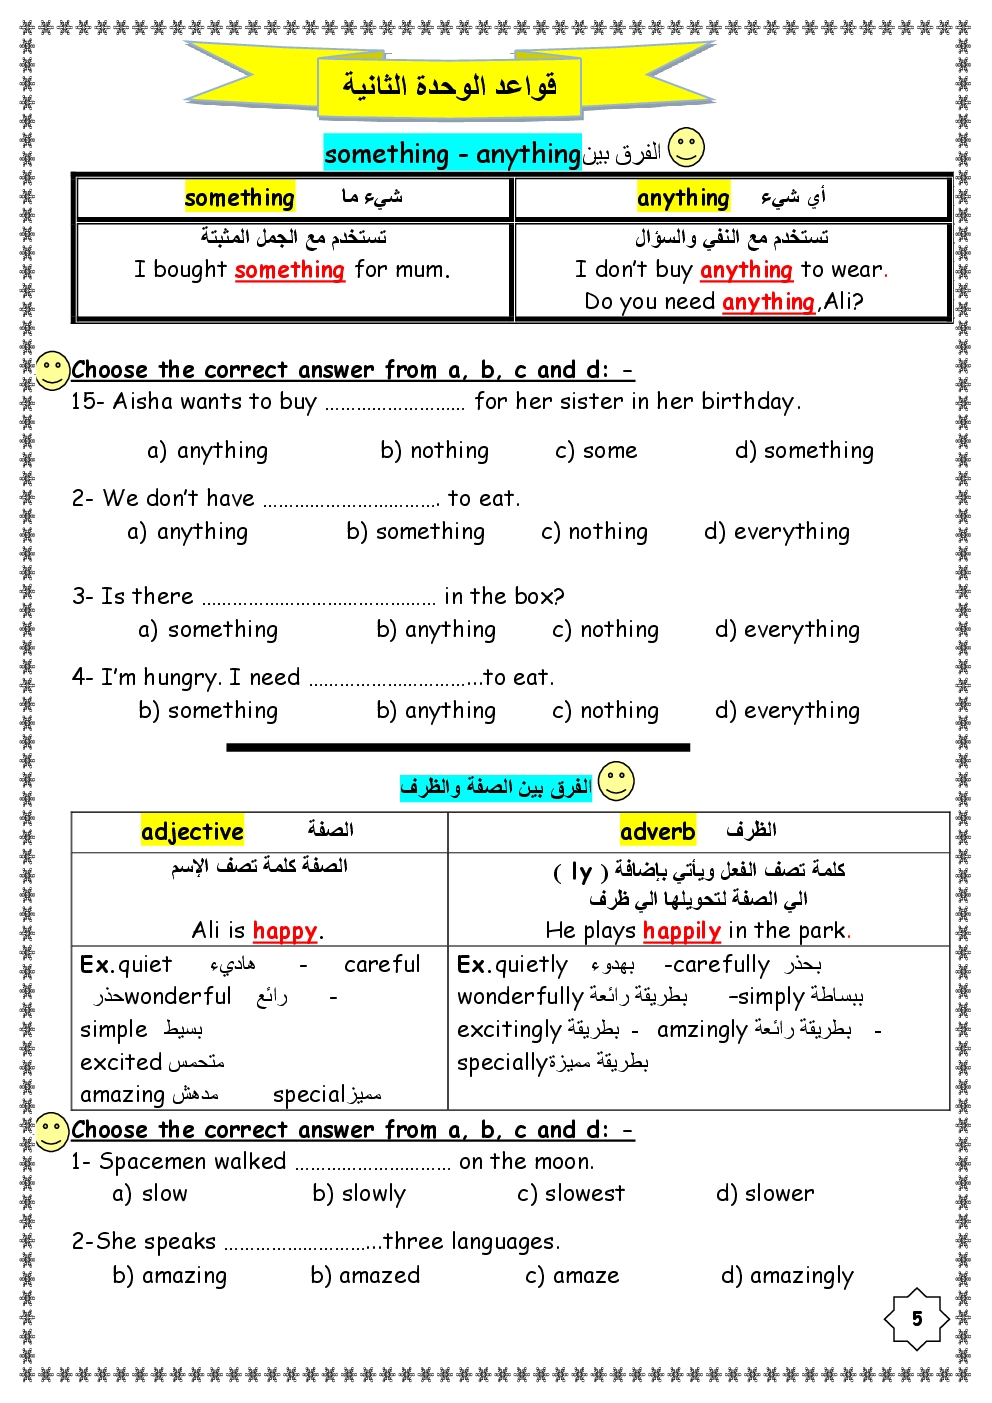 قواعد الوحدة الثانية
الفرق بين something - anything
something شيء ما
anything أي شيء
تستخدم مع الجمل المثبتة
I bought something for mum.
تستخدم مع النفي والسؤال
I don't buy anything to wear.
Do you need anything,Ali?
Choose the correct answer from a, b, c and d: -
15- Aisha wants to buy ........................... for her sister in her birthday.
a) anything b) nothing c) some d) something
2- We don't have ................................. to eat.
a) anything b) something c) nothing d) everything
3- Is there ........................................... in the box?
a) something b) anything c) nothing d) everything
4- I'm hungry. I need ................................to eat.
b) something b) anything c) nothing d) everything
الفرق بين الصفة والظرف
adjective الصفة
adverb الظرف
الصفة كلمة تصف الإسم
Ali is happy.
كلمة تصف الفعل ويأتي بإضافة ( ly )
الي الصفة لتحويلها الي ظرف
He plays happily in the park.
Ex.quiet هاديء - careful
حذر wonderful رائع -
simple بسيط
excited متحمس
amazing مدهش special مميز
Ex.quietly بهدوء -carefully بحذر
wonderfully بطريقة رائعة -simply ببساطة
excitingly بطريقة - amzingly بطريقة رائعة -
specially بطريقة مميزة
Choose the correct answer from a, b, c and d: -
1- Spacemen walked ............................. on the moon.
a) slow b) slowly c) slowest d) slower
2-She speaks .............................three languages.
b) amazing b) amazed c) amaze d) amazingly
5